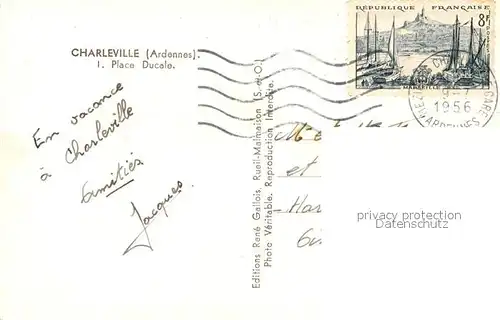 CHARLEVILLE (Ardennes).
1. Place Ducale.
En vacance
à Charleville
Amitiés
Jacques.
Editions René Gallois, Rueil-Malmaison (S.-et-O.)
Photo Véritable. Reproduction Interdite.
RÉPUBLIQUE FRANÇAISE
8F
MARSEILLE
GARE
1956
ARDENNES
et
privacy protection
Datenschutz